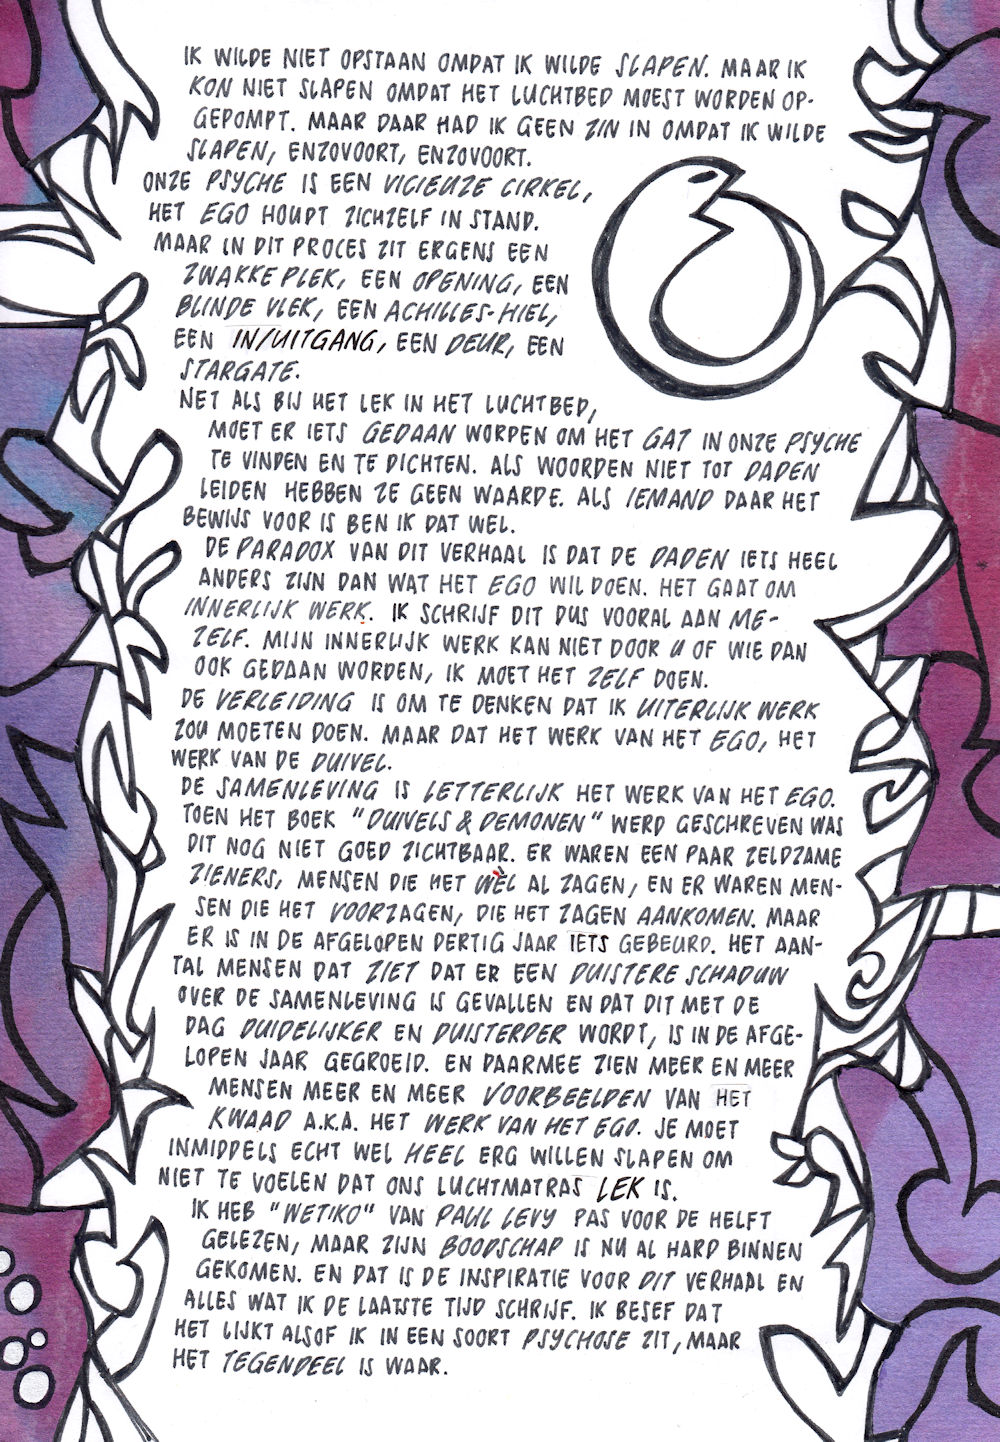 IK WILDE NIET OPSTAAN OMDAT IK WILDE SLAPEN. MAAR IK
KON NIET SLAPEN OMDAT HET LUCHTBED MOEST WORDEN OP-
GEPOMPT. MAAR DAAR HAD IK GEEN ZIN IN OMDAT IK WILDE
SLAPEN, ENZOVOORT, ENZOVOORT.
ONZE PSYCHE IS EEN VICIEUZE CIRKEL,
HET EGO HOUDT ZICHZELF IN STAND.
MAAR IN DIT PROCES ZIT ERGENS EEN
ZWAKKE PLEK, EEN OPENING, EEN
BLINDE VLEK, EEN ACHILLES-HIEL,
EEN IN/UITGANG, EEN DEUR, EEN
STARGATE.
NET ALS BIJ HET LEK IN HET LUCHTBED,
MOET ER IETS GEDAAN WORDEN OM HET GAT IN ONZE PSYCHE
TE VINDEN EN TE DICHTEN. ALS WOORDEN NIET TOT DADEN
LEIDEN HEBBEN ZE GEEN WAARDE. ALS IEMAND DAAR HET
BEWIJS VOOR IS BEN IK DAT WEL.
DE PARADOX VAN DIT VERHAAL IS DAT DE DADEN IETS HEEL
ANDERS ZIJN DAN WAT HET EGO WIL DOEN. HET GAAT OM
INNERLIJK WERK. IK SCHRIJF DIT DUS VOORAL AAN ME-
ZELF. MIJN INNERLIJK WERK KAN NIET DOOR U OF WIE DAN
OOK GEDAAN WORDEN, IK MOET HET ZELF DOEN.
DE VERLEIDING IS OM TE DENKEN DAT IK UITERLIJK WERK
ZOU MOETEN DOEN. MAAR DAT HET WERK VAN HET EGO, HET
WERK VAN DE DUIVEL.
DE SAMENLEVING IS LETTERLIJK HET WERK VAN HET EGO.
TOEN HET BOEK "DUIVELS & DEMONEN" WERD GESCHREVEN WAS
DIT NOG NIET GOED ZICHTBAAR. ER WAREN EEN PAAR ZELDZAME
ZIENERS, MENSEN DIE HET WÈL AL ZAGEN, EN ER WAREN MEN-
SEN DIE HET VOORZAGEN, DIE HET ZAGEN AANKOMEN. MAAR
ER IS IN DE AFGELOPEN DERTIG JAAR IETS GEBEURD. HET AAN-
TAL MENSEN DAT ZIET DAT ER EEN DUISTERE SCHADUW
OVER DE SAMENLEVING IS GEVALLEN EN DAT DIT MET DE
DAG DUIDELIJKER EN DUISTERDER WORDT, IS IN DE AFGE-
LOPEN JAAR GEGROEID. EN DAARMEE ZIEN MEER EN MEER
MENSEN MEER EN MEER VOORBEELDEN VAN HET
KWAAD A.K.A. HET WERK VAN HET EGO. JE MOET
INMIDDELS ECHT WEL HEEL ERG WILLEN SLAPEN OM
NIET TE VOELEN DAT ONS LUCHTMATRAS LEK IS.
IK HEB "WETIKO" VAN PAUL LEVY PAS VOOR DE HELFT
GELEZEN, MAAR ZIJN BOODSCHAP IS NU AL HARD BINNEN
GEKOMEN. EN DAT IS DE INSPIRATIE VOOR DIT VERHAAL EN
ALLES WAT IK DE LAATSTE TIJD SCHRIJF. IK BESEF DAT
HET LIJKT ALSOF IK IN EEN SOORT PSYCHOSE ZIT, MAAR
HET TEGENDEEL IS WAAR.